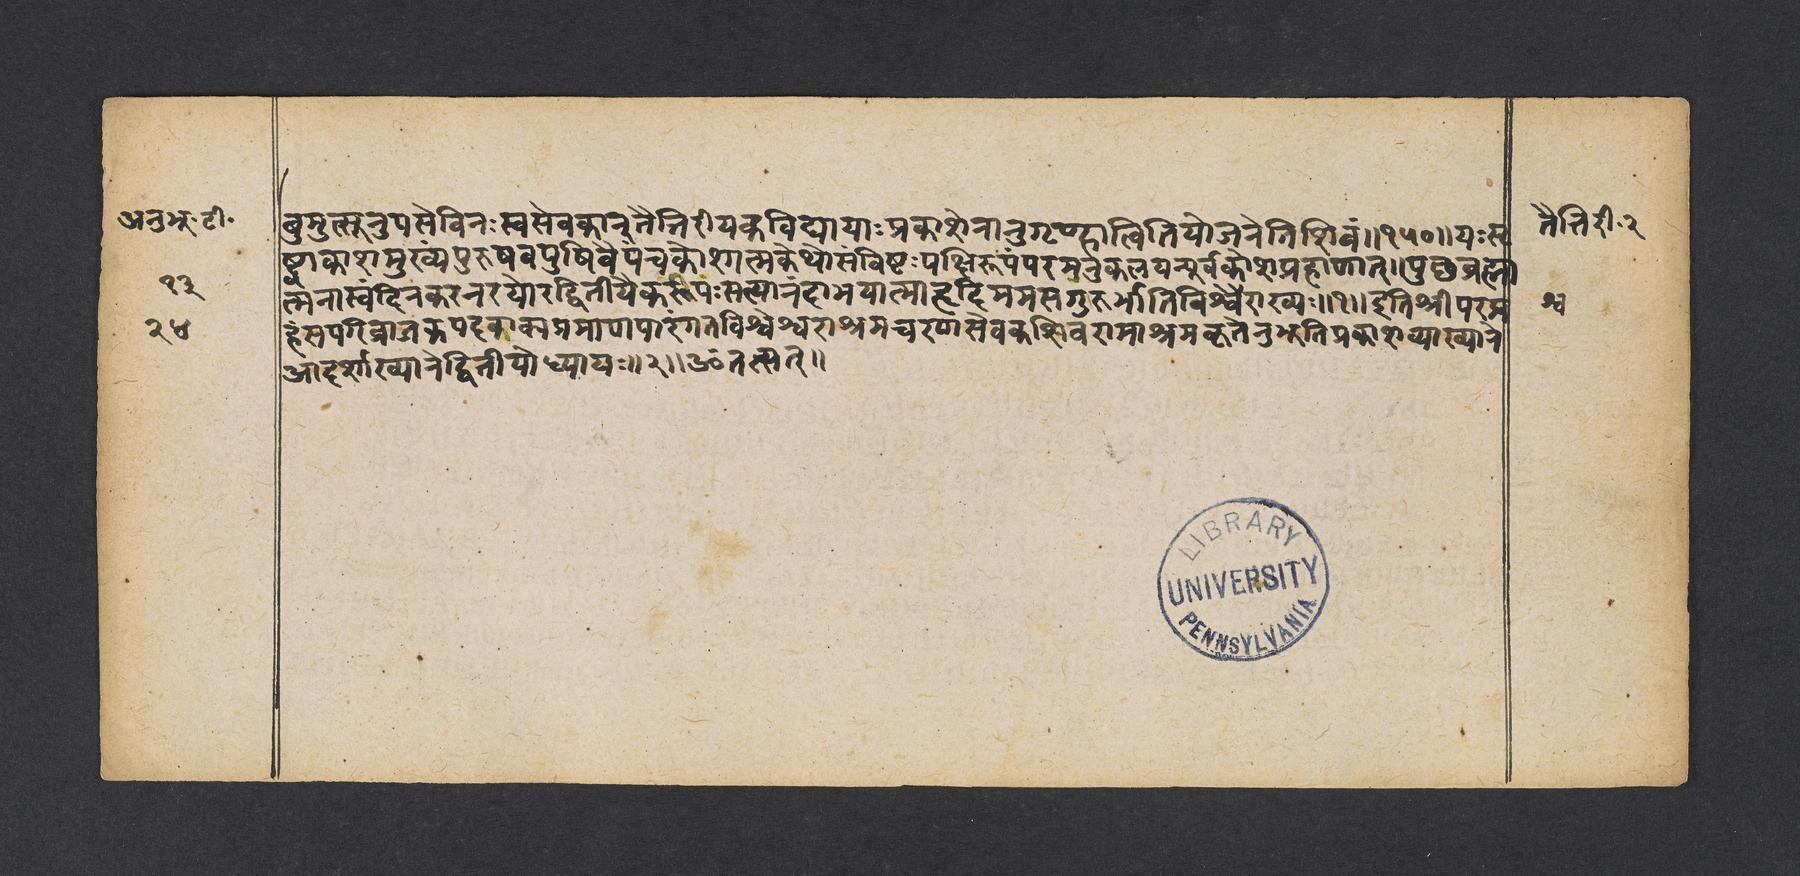 अनुभू॰टी॰
१३
२४
बुभुत्सूनुपसेविनःस्वसेवकान्तैत्तिरीयकविद्यायाःप्रकाशेनानुगृण्हात्वितियोजनेतिशिवं॥१५०॥यःसृ
ष्ट्वाकाशमुख्यंपुरुषवपुषिवैपंचकोशात्मकेथोसंविष्टःपक्षिरूपंपरमनुकलयन्पूर्वकोशप्रहाणात्॥पुछब्रह्मा
त्मनास्वंदिनकरनरयोरद्वितीयैकरूपःसत्यानंदाभयात्माहृदिममसगुरुर्भातिविश्वेश्वराख्यः॥१॥इतिश्रीपरम
हंसपरिव्राजकपदवाक्यप्रमाणपारंगतविश्वेश्वराश्रमचरणसेवकशिवरामाश्रमकृतेनुभूतिप्रकाशव्याख्याने
आदर्शाख्यानेद्वितीयोध्यायः॥२॥ॐतत्सत्॥
तैत्तिरी॰२
श्व
LIBRARY
UNIVERSITY
PENNSYLVANIA